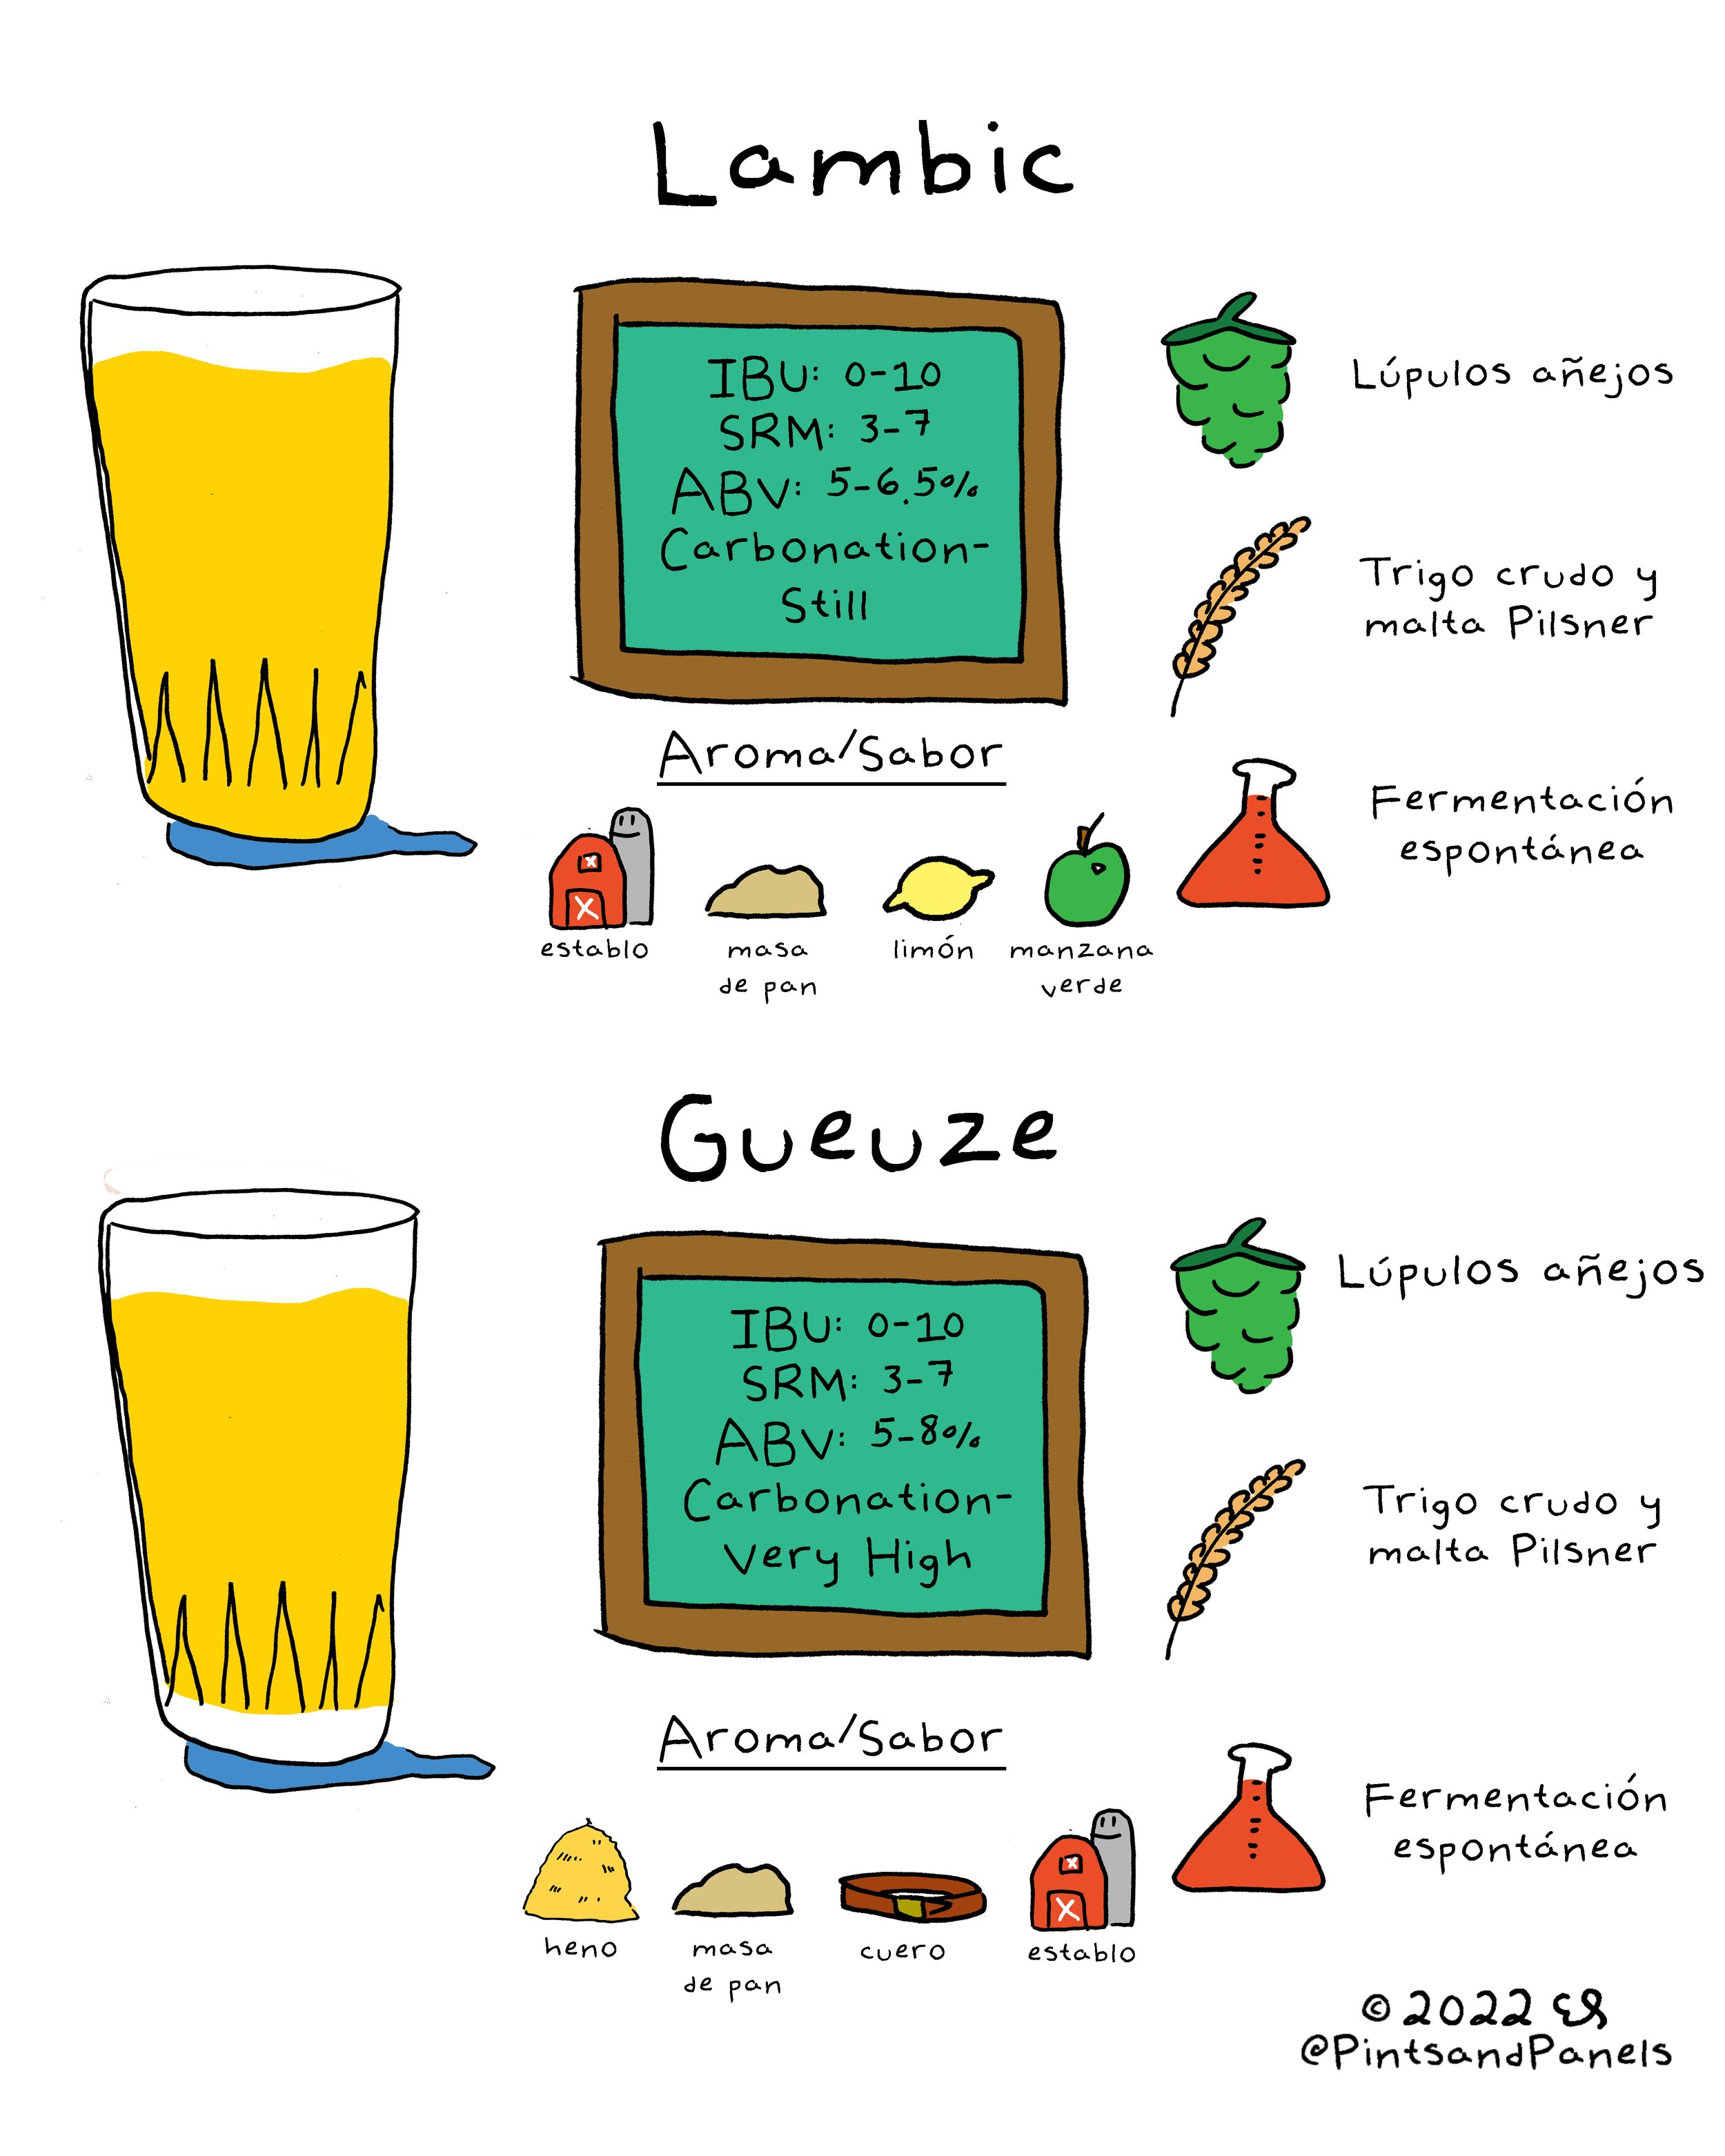 Lambic
IBU: 0-10
SRM: 3-7
ABV: 5-6.5%
Carbonation-
Still
Lúpulos añejos
Trigo crudo y
malta Pilsner
Fermentación
espontánea
Aroma/Sabor
establo
masa
de pan
limón
manzana
verde
Gueuze
IBU: 0-10
SRM: 3-7
ABV: 5-8%
Carbonation-
Very High
Lúpulos añejos
Trigo crudo y
malta Pilsner
Fermentación
espontánea
Aroma/Sabor
heno
masa
de pan
cuero
establo
© 2022
@PintsandPanels